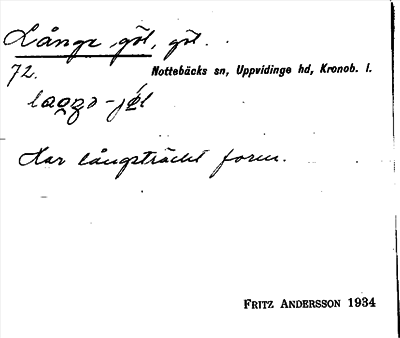 Långe göl, göl.
72.
Nottebäcks sn, Uppvidinge hd, Kronob. l.
Har långsträckt form.
FRITZ ANDERSSON 1934